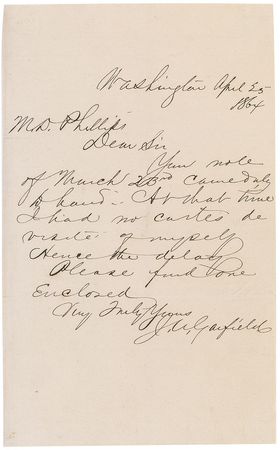 Washington April 25
1864
M.D. Phillips
Dear Sir
Your note
of March 22nd came duly
to hand. At that time
I had no cartes de
visite of myself
Hence the delay
Please find one
Enclosed
Very Truly Yours
J.A. Garfield